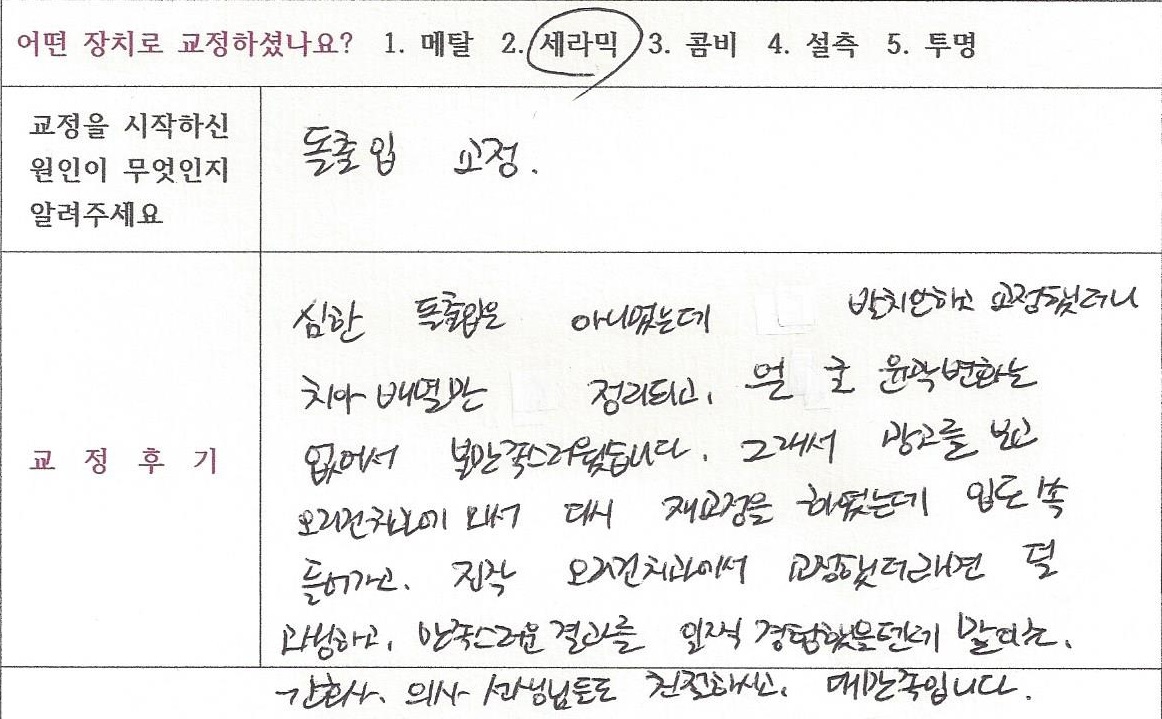 어떤 장치로 교정하셨나요? 1. 메탈 2. 세라믹 3. 콤비 4. 설측 5. 투명
교정을 시작하신
원인이 무엇인지
알려주세요
돌출입 교정.
교 정 후 기
심한 돌출입은 아니였는데 발치안하고 교정했더니
치아 배열만 정리되고, 얼굴 윤곽변화는
없어서 불만족스러웠습니다. 그래서 광고를 보고
오리건치과에 와서 다시 재교정을 하였는데 입도 쏙
들어가고. 진작 오리건치과에서 교정했더라면 덜
고생하고, 만족스러운 결과를 일찍 경험했을텐데 말이죠.
간호사, 의사 선생님들도 친절하시고, 대만족입니다.